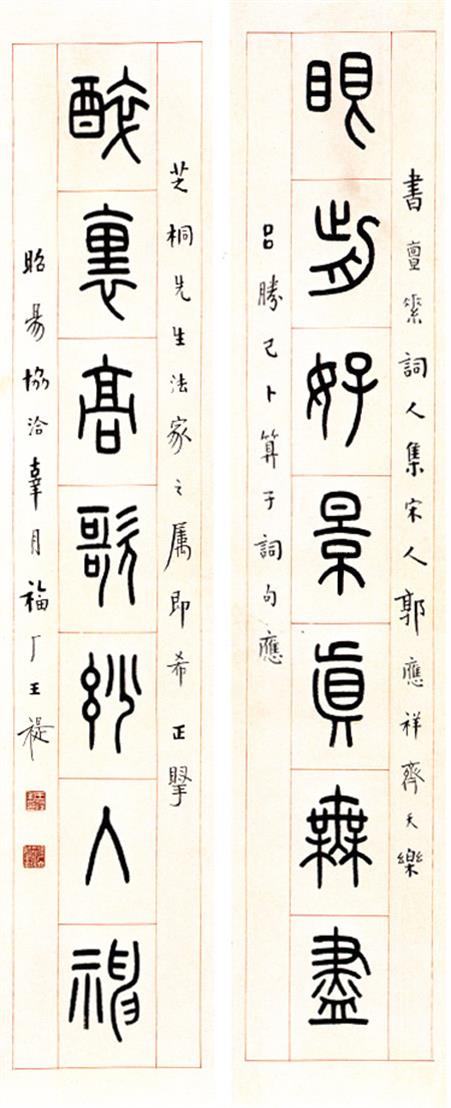 眼前好景眞無盡
書亶詞人集宋人郭應祥齊天樂
呂勝己卜算子詞句應
醉裏高歌玅入神
芝桐先生法家之属即希正掔
昭昜協洽辜月福厂王禔